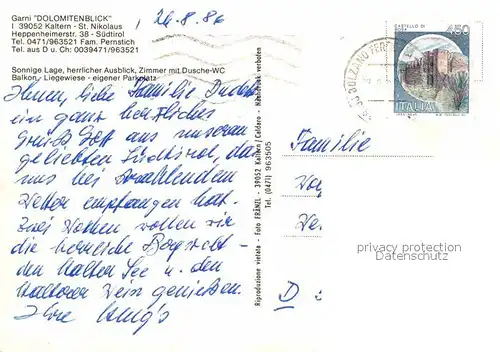 Garni "DOLOMITENBLICK"
I 39052 Kaltern - St. Nikolaus
Heppenheimerstr. 38 - Südtirol
Tel. 0471/963521 Fam. Pernstich
Tel. aus D u. Ch: 0039471/963521
Sonnige Lage, herrlicher Ausblick, Zimmer mit Dusche-WC
Balkon, Liegewiese - eigener Parkplatz
24.8.86
Ihnen, liebe Familie
ein ganz herzliches
Grüß Gott aus unserem
geliebten Südtirol, das
uns bei strahlendem
Wetter empfangen hat.
Zwei Wochen wollen wir
die herrliche Bergwelt -
den Kalterer See u. den
Kalterer Wein genießen.
Ihre
Riproduzione vietata - Foto FRÄNZL - 39052 Kaltern / Caldero - Nachdruck verboten
Tel. (0471) 963505
CASTELLO DI
450
ITALIA
BOLZANO
Familie
D
privacy protection
Datenschutz